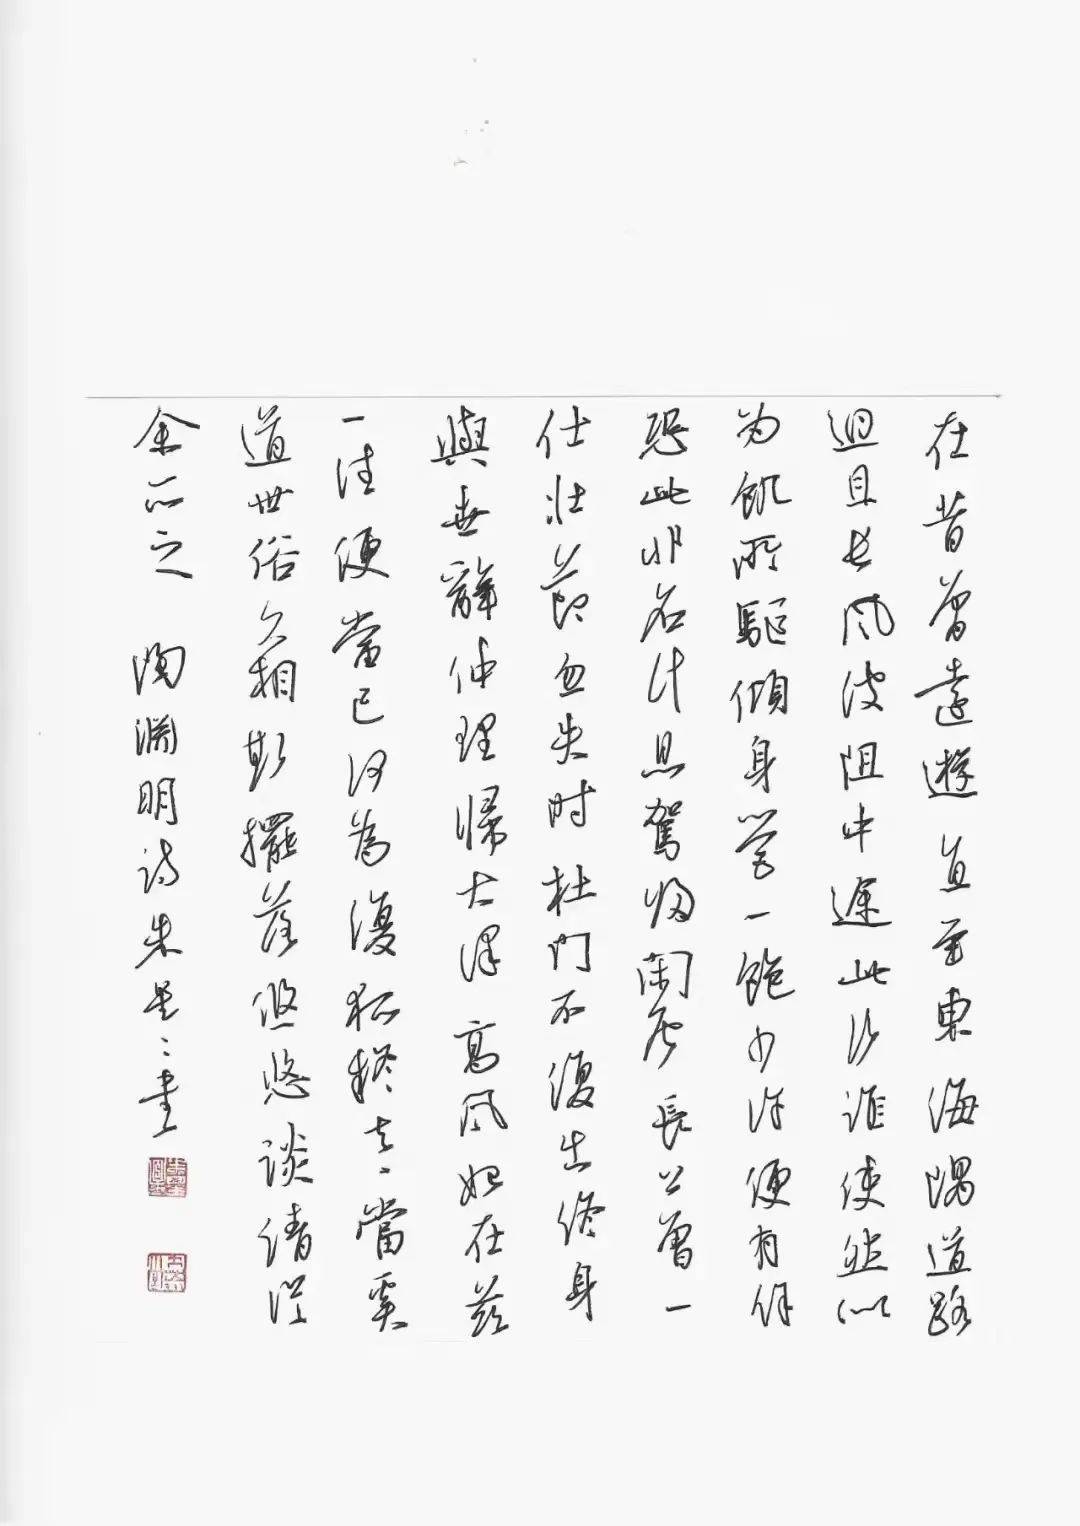 在昔曾遠遊直至東海隅道路
迴且長風波阻中途此行誰使然似
为飢所驅傾身營一飽少许便有餘
恐此非名计息駕歸閑居長公曾一
仕壯節忽失时杜门不復出終身
與世辭仲理歸大澤高风始在茲
一往便當已何為復狐疑去〻當奚
道世俗久相欺擺落悠悠談請從
余所之 陶淵明詩朱書